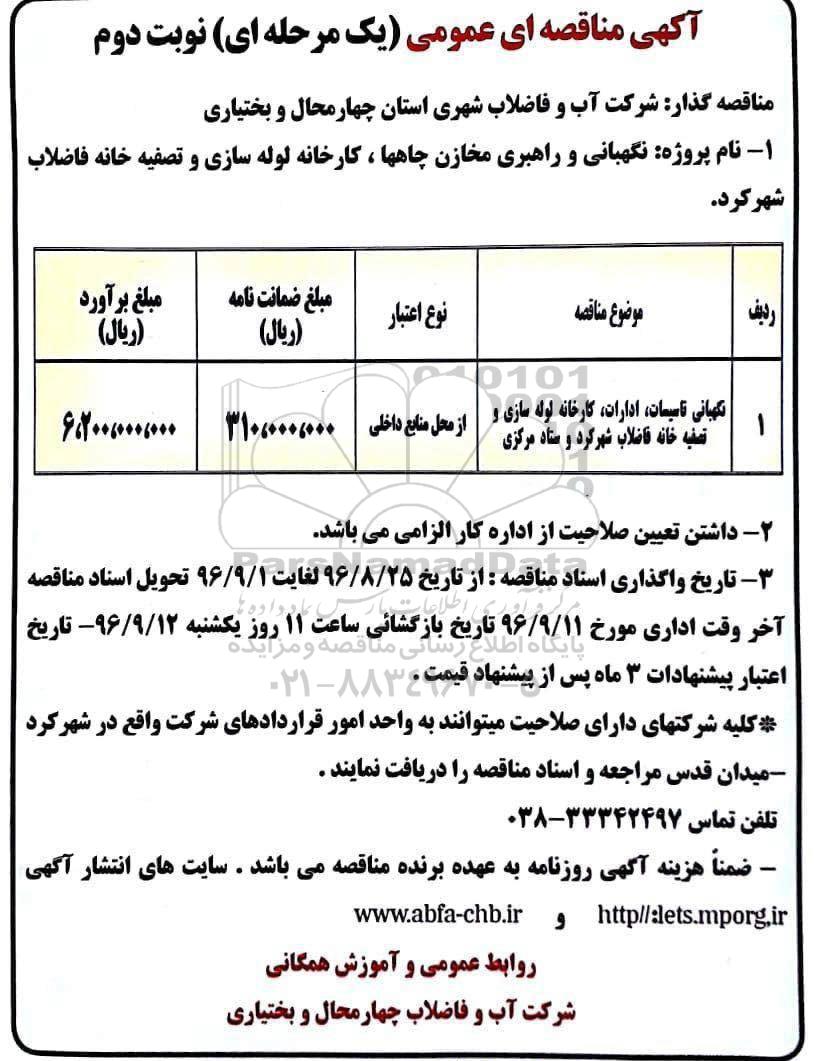 آگهی مناقصه ای عمومی (یک مرحله ای) نوبت دوم
مناقصه گذار: شرکت آب و فاضلاب شهری استان چهارمحال و بختیاری
۱- نام پروژه: نگهبانی و راهبری مخازن چاهها ، کارخانه لوله سازی و تصفیه خانه فاضلاب
شهرکرد.
ردیف موضوع مناقصه نوع اعتبار مبلغ ضمانت نامه (ریال) مبلغ برآورد (ریال)
۱ نگهبانی تاسیسات، ادارات، کارخانه لوله سازی و تصفیه خانه فاضلاب شهرکرد و ستاد مرکزی از محل منابع داخلی ۳۱۰،۰۰۰،۰۰۰ ۶،۲۰۰،۰۰۰،۰۰۰
۲- داشتن تعیین صلاحیت از اداره کار الزامی می باشد.
ParsNamadData
۳- تاریخ واگذاری اسناد مناقصه : از تاریخ ۹۶/۸/۲۵ لغایت ۹۶/۹/۱ تحویل اسناد مناقصه
مرکز فرآوری اطلاعات پارس نماد داده ها
آخر وقت اداری مورخ ۹۶/۹/۱۱ تاریخ بازگشائی ساعت ۱۱ روز یکشنبه ۹۶/۹/۱۲- تاریخ
پایگاه اطلاع رسانی مناقصه و مزایده
اعتبار پیشنهادات ۳ ماه پس از پیشنهاد قیمت .
۰۲۱-۸۸۳۴۹۶۷۰-۵
*کلیه شرکتهای دارای صلاحیت میتوانند به واحد امور قراردادهای شرکت واقع در شهرکرد
-میدان قدس مراجعه و اسناد مناقصه را دریافت نمایند .
تلفن تماس ۳۳۳۴۲۴۹۷-۰۳۸
- ضمناً هزینه آگهی روزنامه به عهده برنده مناقصه می باشد . سایت های انتشار آگهی
http//:lets.mporg,ir و www.abfa-chb.ir
روابط عمومی و آموزش همگانی
شرکت آب و فاضلاب چهارمحال و بختیاری